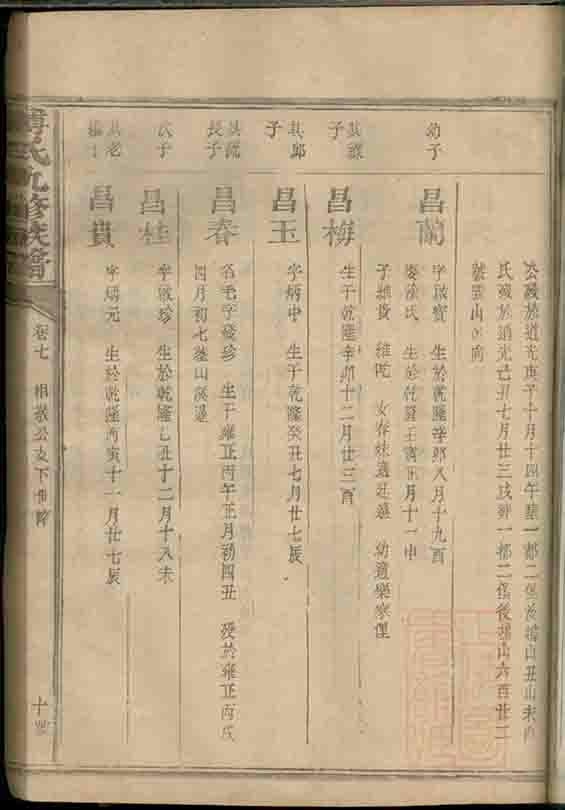 公歿於道光庚子十月十四午塟一都二保後墙山丑山未向
氏歿於道光己丑七月廿三戌塟一都二保後墙山六百廿二
號艮山坤向
幼子
昌蘭
字啟賓 生於乾隆辛卯八月十九酉
娶徐氏 生於乾隆壬寅正月十一申
子維貴 維 女春妹適 幼適樂家僅
其謀
子
昌梅
生于乾隆辛卯十二月廿三酉
其郎
子
昌玉
字炳中 生于乾隆癸丑七月廿七辰
其流
長子
昌春
名毛字發珍 生于雍正丙午正月初四丑 歿於雍正丙戌
四月初七塟山溪邊
次子
昌桂
字啟珍 生於乾隆乙丑十二月十八未
其老
繼子
昌貴
字炳元 生於乾隆丙寅十一月廿七辰
氏九修族譜
卷七
公支下世
十